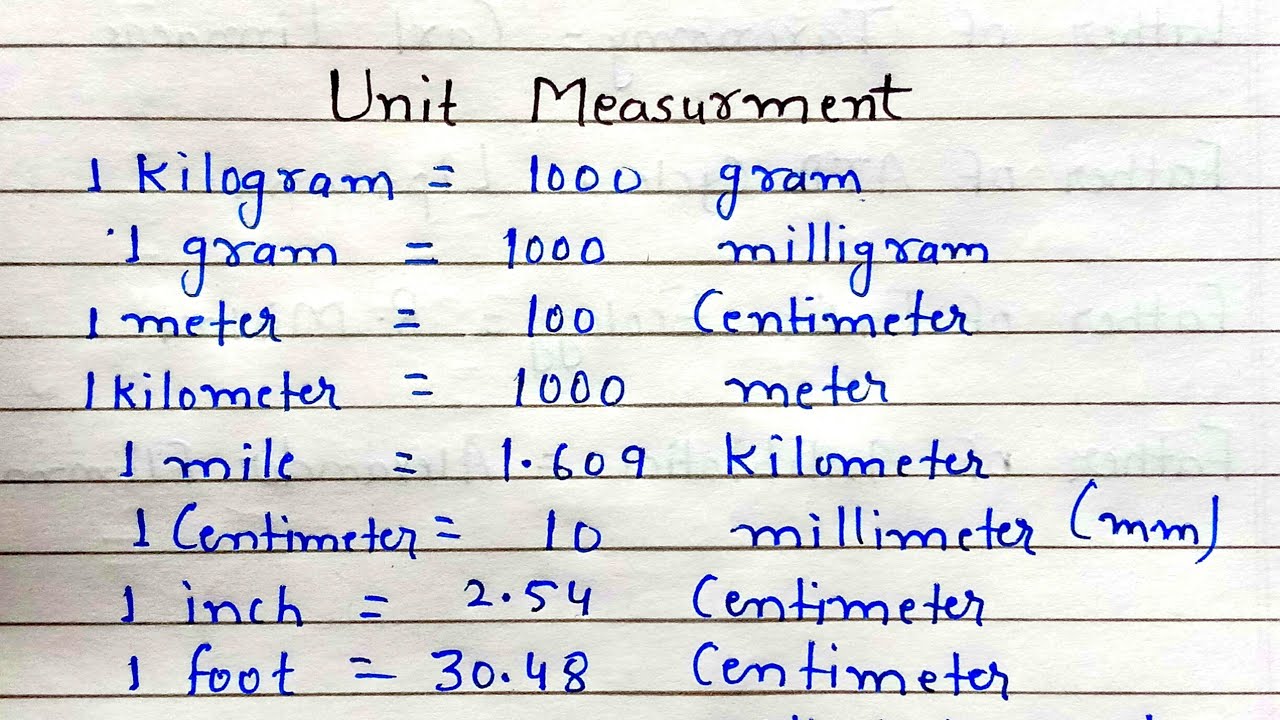 Unit Measurment
1 Kilogram = 1000 gram
1 gram = 1000 milligram
1 meter = 100 Centimeter
1 kilometer = 1000 meter
1 mile = 1.609 Kilometer
1 Centimeter = 10 millimeter (mm)
1 inch = 2.54 Centimeter
1 foot = 30.48 Centimeter